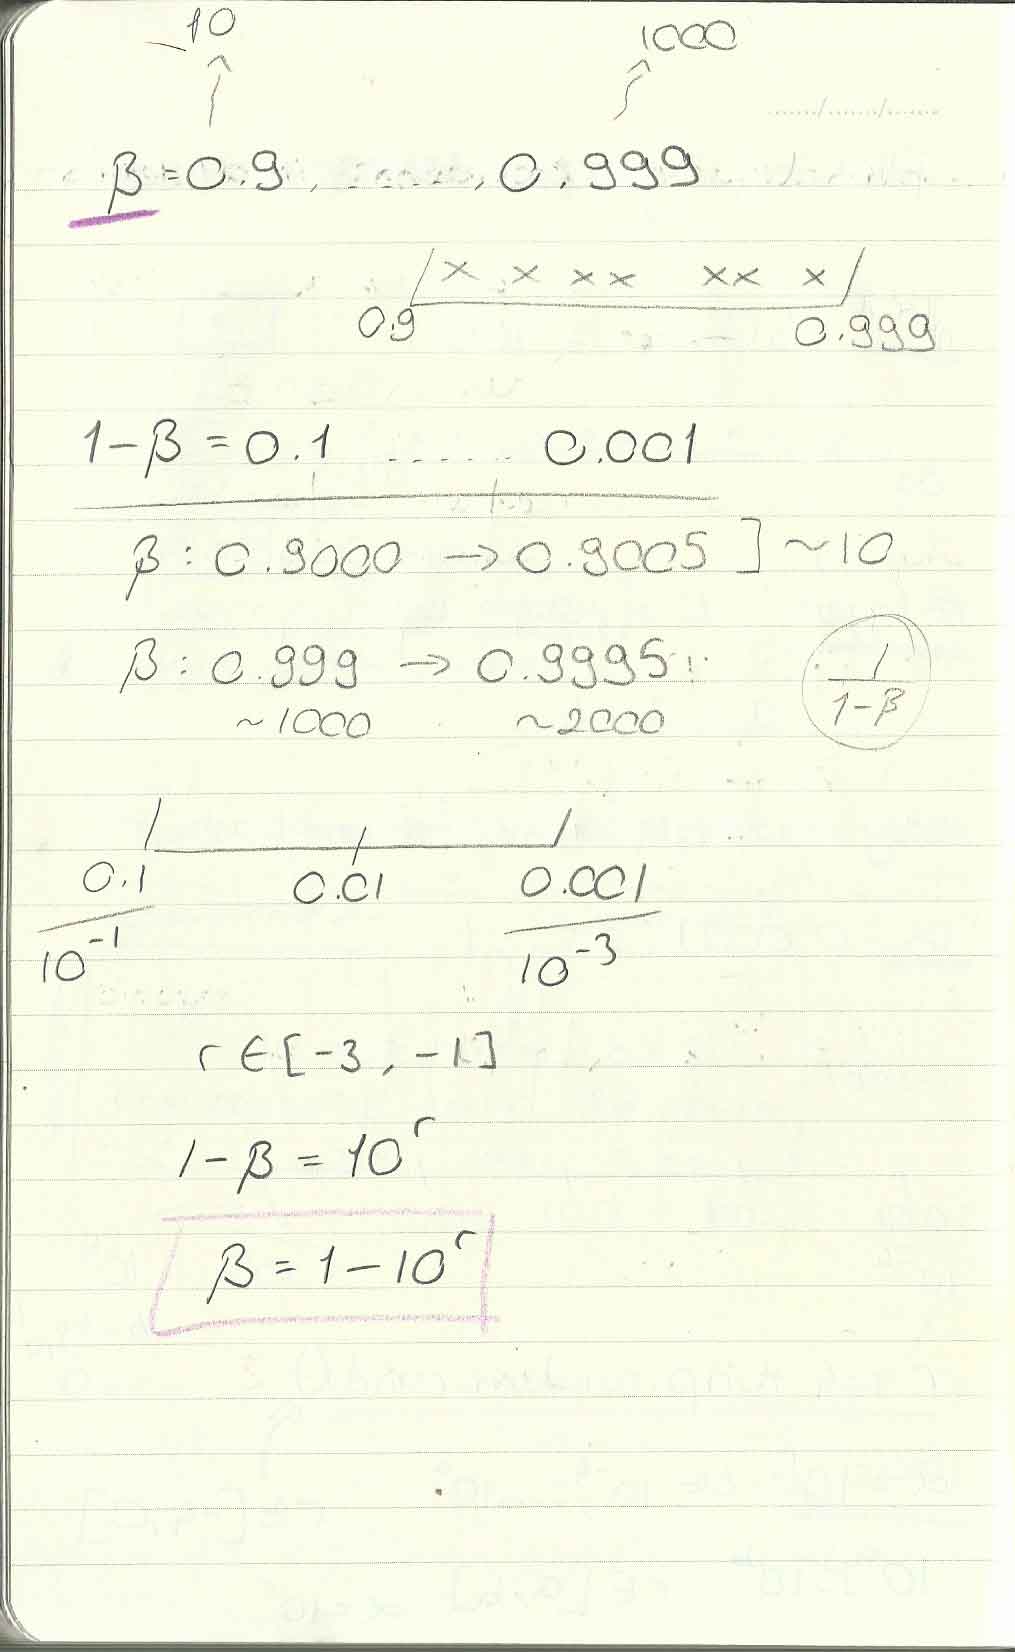 10 1000
β = 0.9, ......, 0.999
x x x x x x x
0.9 0.999
1-β = 0.1 ...... 0.001
β : 0.9000 → 0.9005 ] ~10
β : 0.999 → 0.9995
1/(1-β)
~1000 ~2000
0.1 0.01 0.001
10⁻¹ 10⁻³
r ∈ [-3, -1]
1-β = 10ʳ
β = 1-10ʳ